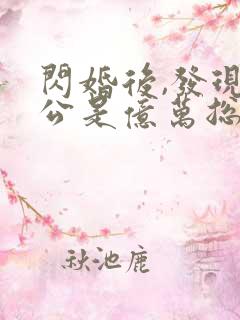 閃婚後,發現
公是億萬總
秋池鹿